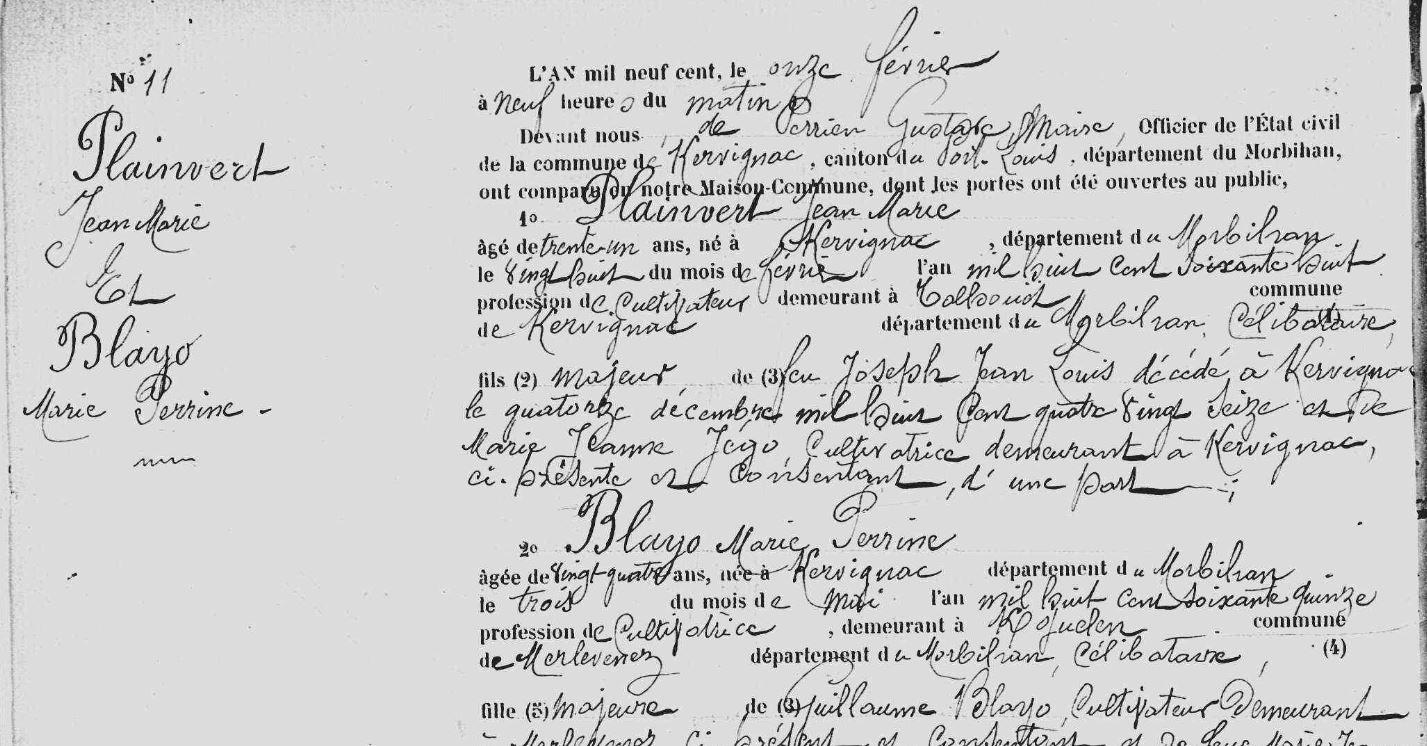 N° 11
Plainvert
Jean Marie
Et
Blayo
Marie Perrine -
L'AN mil neuf cent, le onze février
à neuf heures du matin
Devant nous, de Perrien Gustave, Maire, Officier de l'État civil
de la commune de Kervignac, canton du Port-Louis, département du Morbihan,
ont comparu en notre Maison-Commune, dont les portes ont été ouvertes au public,
1° Plainvert Jean Marie
âgé de trente-un ans, né à Kervignac, département du Morbihan
le vingt huit du mois de février l'an mil huit cent soixante huit
profession de Cultivateur demeurant à commune
de Kervignac département du Morbihan, Célibataire,
fils (2) majeur, de (3) feu Joseph Jean Louis décédé à Kervignac
le quatorze décembre mil huit cent quatre vingt seize et de
Marie Jeanne Jégo, Cultivatrice demeurant à Kervignac,
ci-présente et consentant, d'une part ;
2° Blayo Marie Perrine
âgée de vingt-quatre ans, née à Kervignac département du Morbihan
le trois du mois de Mai l'an mil huit cent soixante quinze
profession de Cultivatrice, demeurant à commune
de Merlevenez département du Morbihan, Célibataire, (4)
fille (5) majeure de (3) Guillaume Blayo, Cultivateur Demeurant
à Merlevenez ci présent et consentant et de